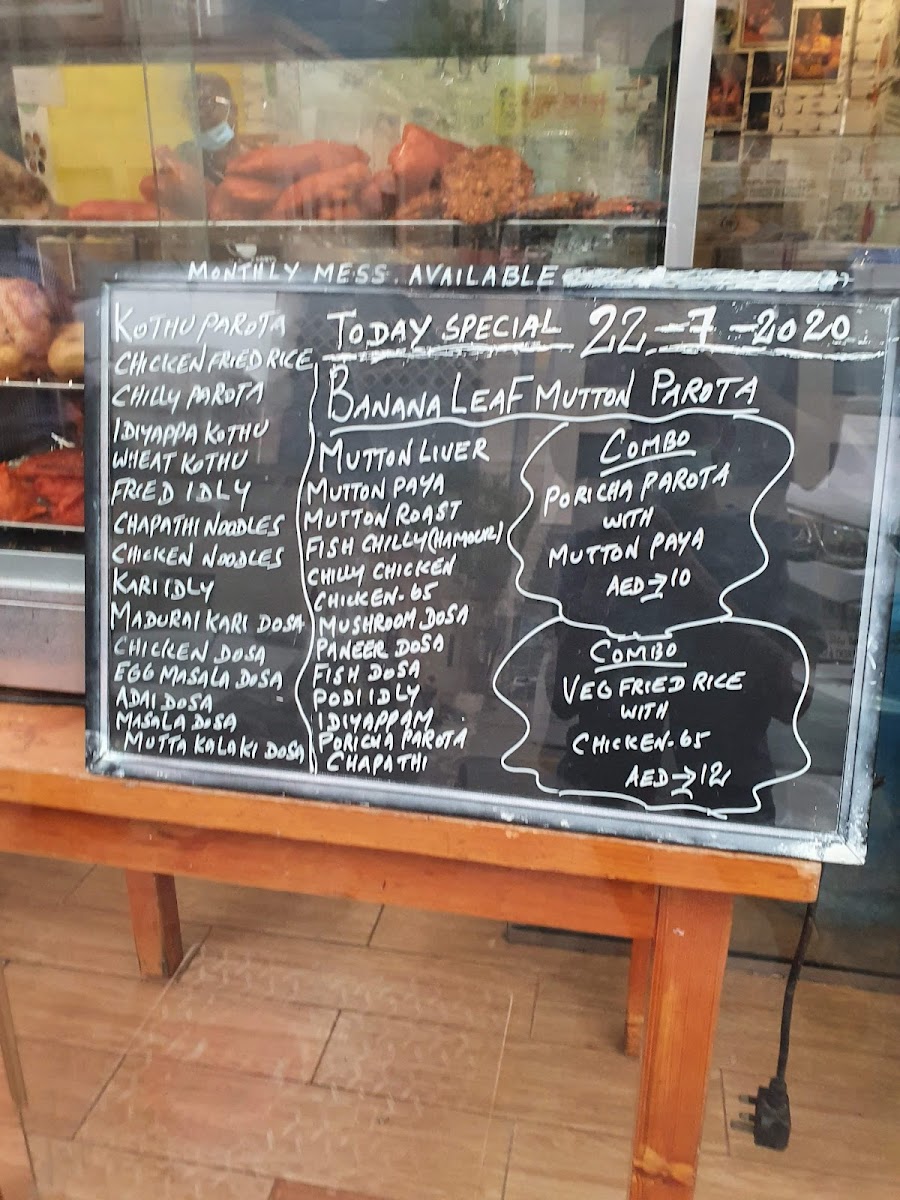 MONTHLY MESS. AVAILABLE
TODAY SPECIAL 22-7-2020
KOTHU PAROTA
CHICKEN FRIED RICE
CHILLY PAROTA
IDIYAPPA KOTHU
WHEAT KOTHU
FRIED IDLY
CHAPATHI NOODLES
CHICKEN NOODLES
KARI IDLY
MADURAI KARI DOSA
CHICKEN DOSA
EGG MASALA DOSA
ADAI DOSA
MASALA DOSA
MUTTA KALAKI DOSA
BANANA LEAF MUTTON PAROTA
MUTTON LIVER
MUTTON PAYA
MUTTON ROAST
FISH CHILLY (HAMOUR)
CHILLY CHICKEN
CHICKEN-65
MUSHROOM DOSA
PANEER DOSA
FISH DOSA
PODI IDLY
IDIYAPPAM
PORICHA PAROTA
CHAPATHI
COMBO
PORICHA PAROTA
WITH
MUTTON PAYA
AED→10
COMBO
VEG FRIED RICE
WITH
CHICKEN-65
AED→12